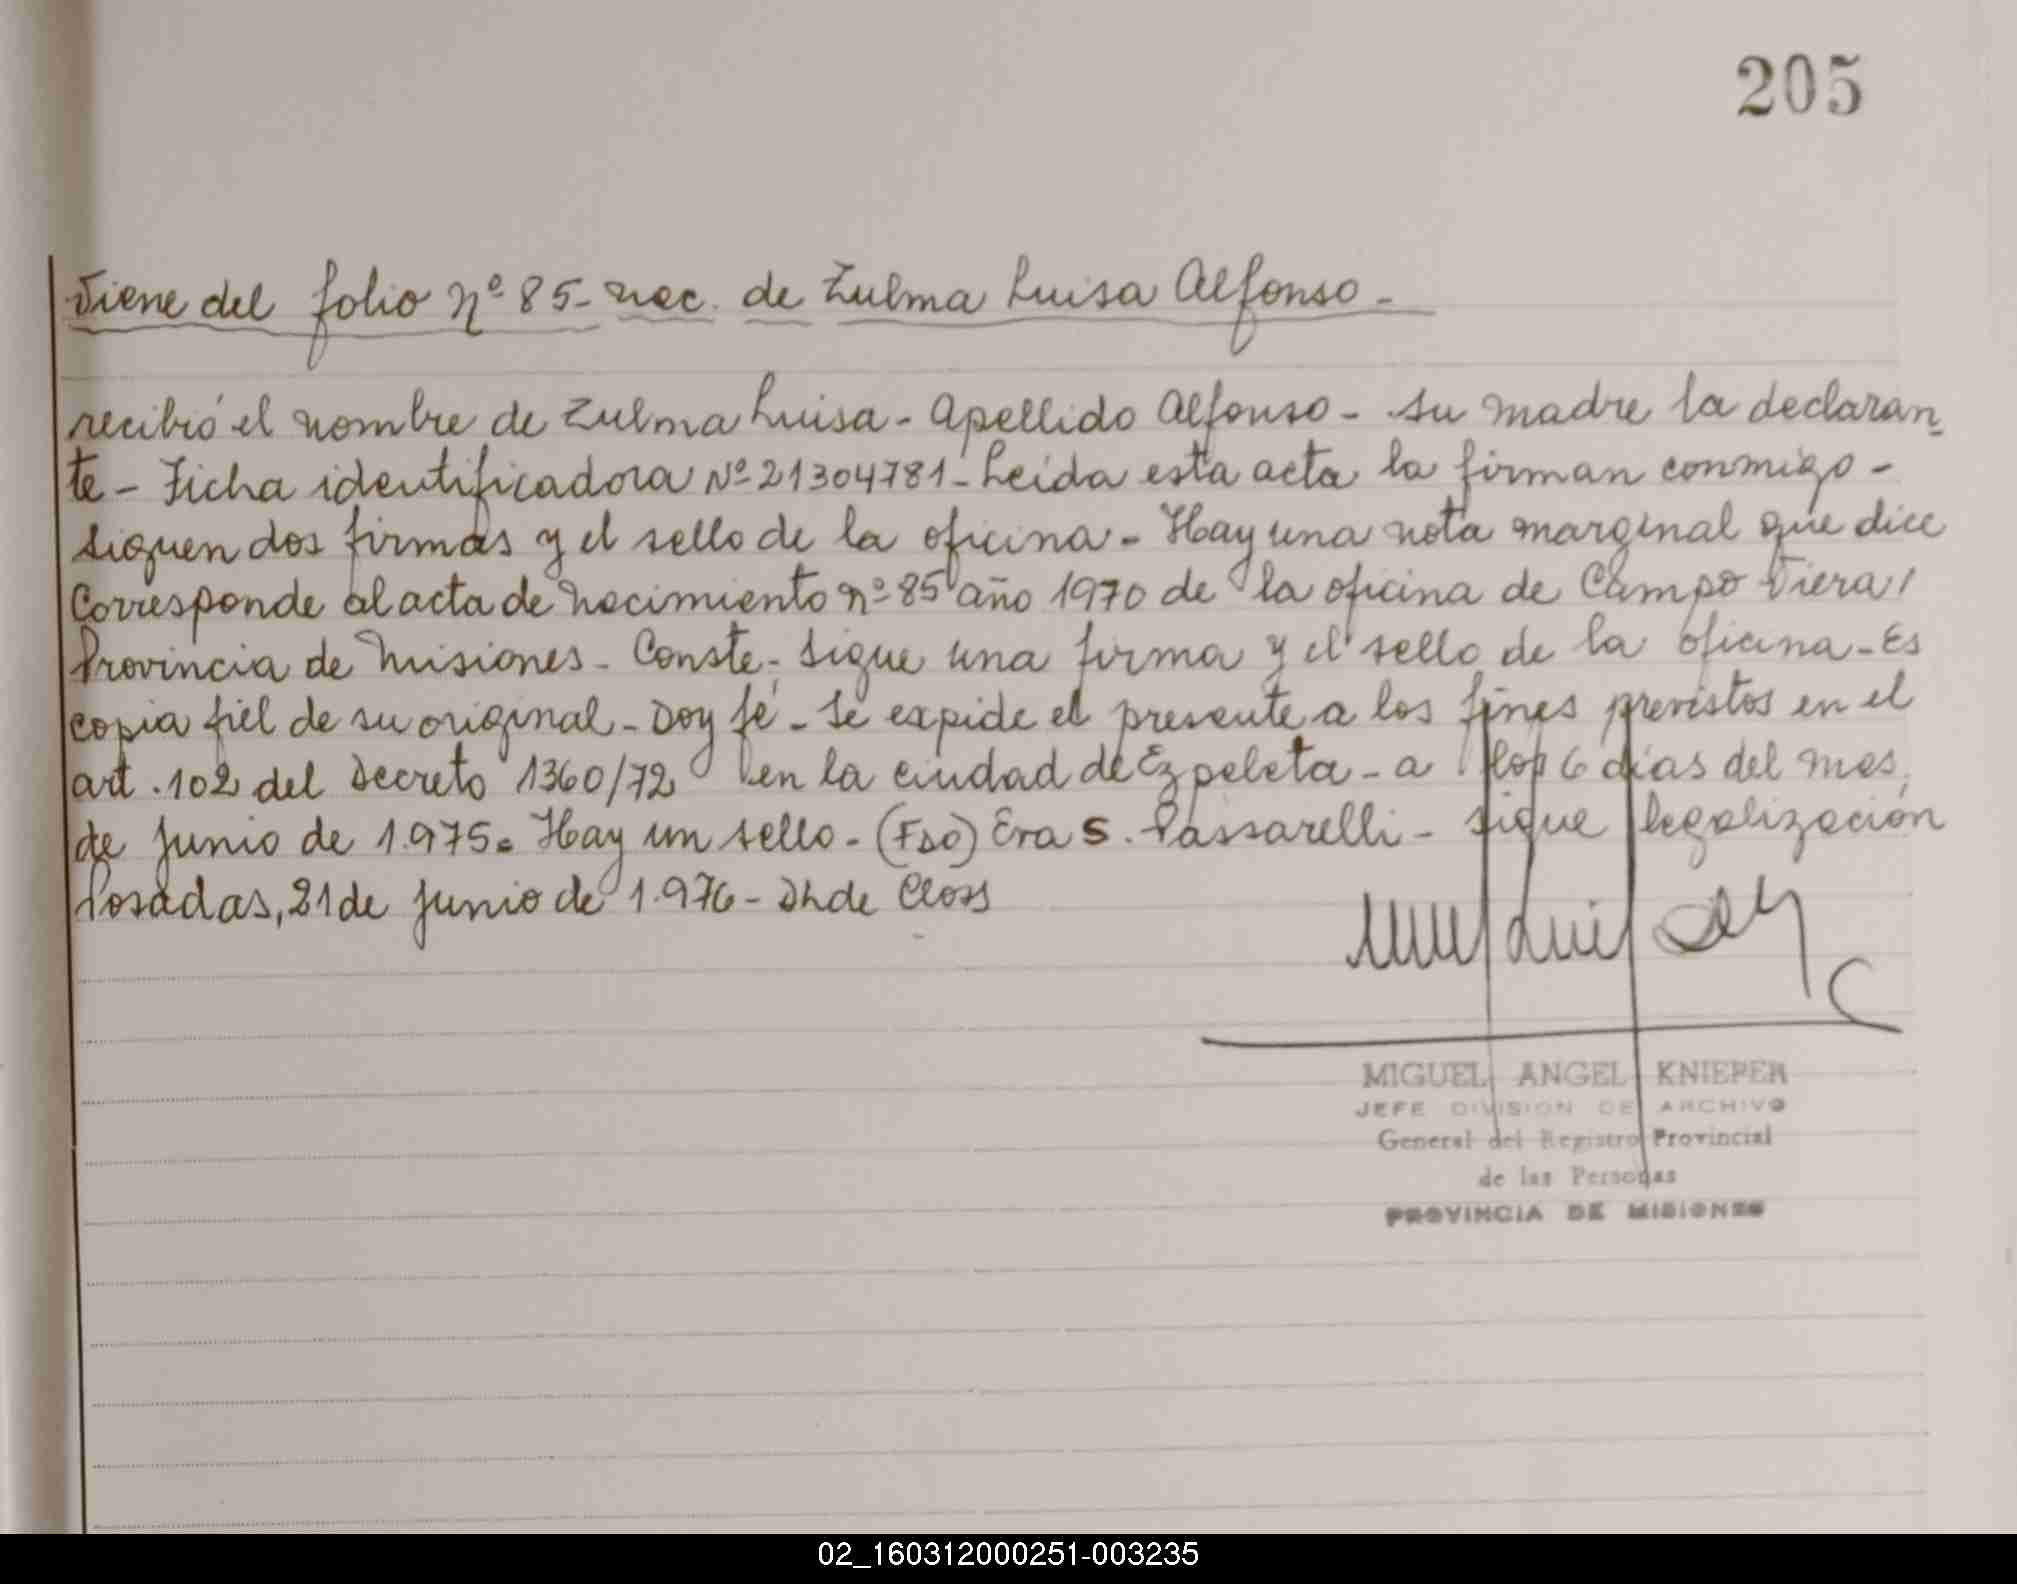 205
Viene del folio Nº 85- nac. de Zulma Luisa Alfonso-
recibió el nombre de Zulma Luisa- Apellido Alfonso- su madre la declaran-
te- Ficha identificadora Nº 21304781- Leída esta acta la firman conmigo-
siguen dos firmas y el sello de la oficina- Hay una nota marginal que dice
Corresponde al acta de nacimiento nº 85 año 1970 de la oficina de Campo Viera,
Provincia de Misiones- Conste- sigue una firma y el sello de la oficina- Es
copia fiel de su original- Doy fé- Se expide el presente a los fines previstos en el
art. 102 del Decreto 1360/72 en la ciudad de Ezpeleta- a los 6 días del mes
de Junio de 1.975. Hay un sello- (Fdo) Era S. Passarelli- sigue legalización
Posadas, 21 de Junio de 1.976- Closs
MIGUEL ANGEL KNIEPER
JEFE DIVISION DE ARCHIVO
General del Registro Provincial
de las Personas
PROVINCIA DE MISIONES
02_160312000251-003235